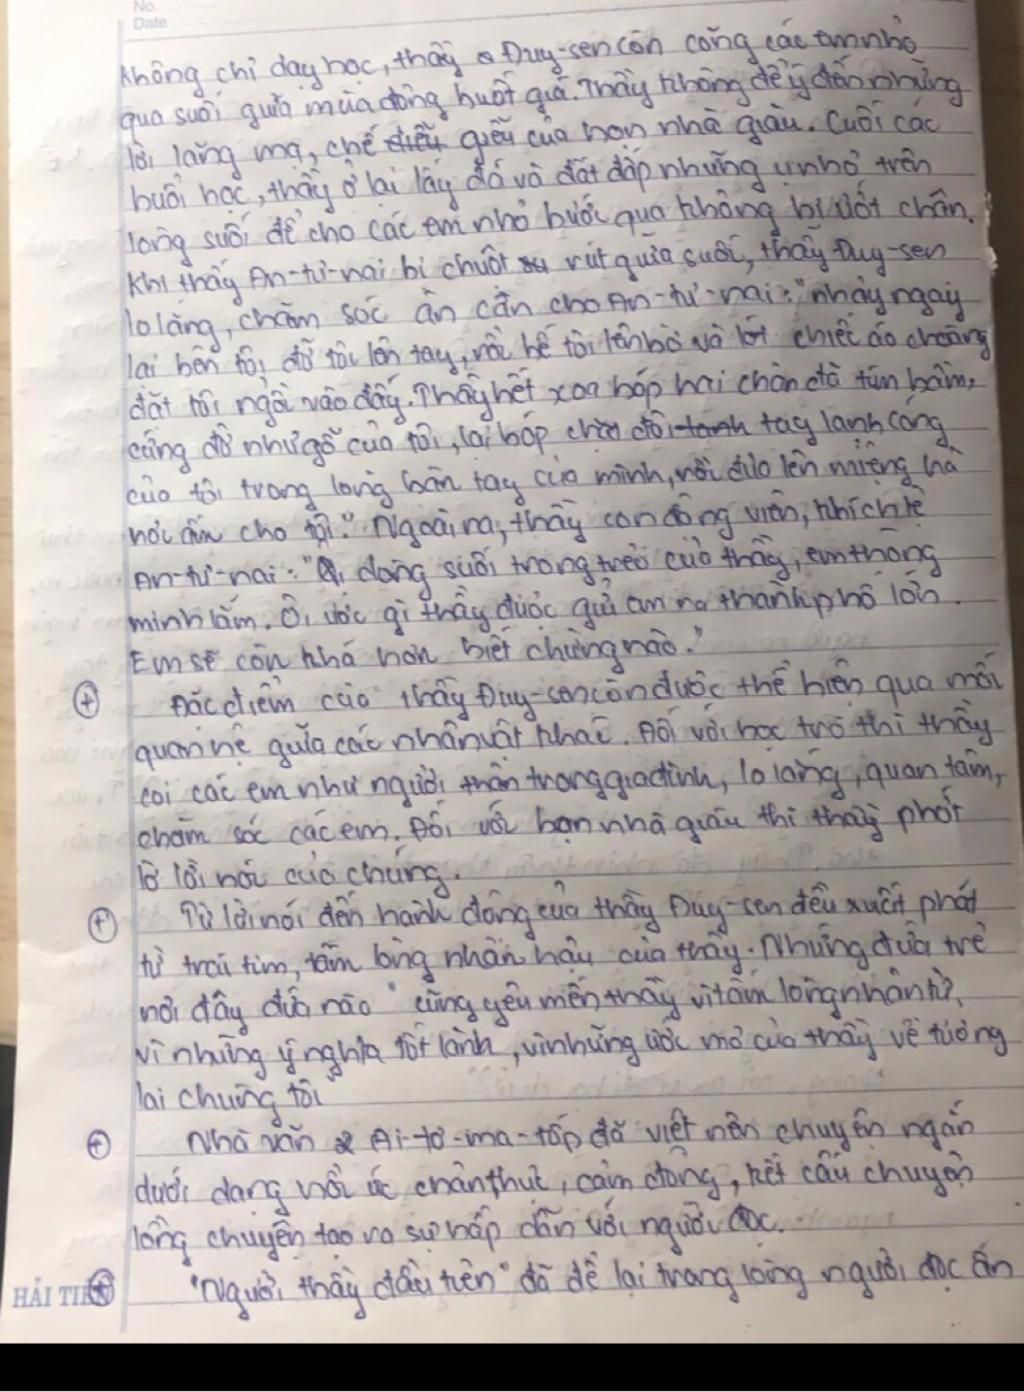 No.
Date
Không chỉ dạy học, thầy Đuy-sen còn cõng các em nhỏ
qua suối giữa mùa đông buốt giá. Thầy không để ý đến những
lời lăng mạ, chế giễu của bọn nhà giàu. Cuối các
buổi học, thầy ở lại lấy đá và đất đắp những ụ nhỏ trên
lòng suối để cho các em nhỏ bước qua không bị ướt chân.
Khi thấy An-tư-nai bị chuột rút giữa suối, thầy Đuy-sen
lo lắng, chăm sóc ân cần cho An-tư-nai: "nhảy ngay
lại bên tôi, đỡ tôi lên tay, rồi bế tôi lên bờ và lót chiếc áo choàng
đặt tôi ngồi vào đấy. Thầy hết xoa bóp hai chân đã tím bầm,
cứng đờ như gỗ của tôi, lại bóp chặt đôi tay lạnh cóng
của tôi trong lòng bàn tay của mình, rồi đưa lên miệng hà
hơi ấm cho tôi." Ngoài ra, thầy còn động viên, khích lệ
An-tư-nai: "Ôi dòng suối trong trẻo của thầy, em thông
minh lắm. Ôi, ước gì thầy được gửi em ra thành phố lớn.
Em sẽ còn khá hơn biết chừng nào."
+ Đặc điểm của thầy Đuy-sen còn được thể hiện qua mối
quan hệ giữa các nhân vật khác. Đối với học trò thì thầy
coi các em như người thân trong gia đình, lo lắng, quan tâm,
chăm sóc các em. Đối với bọn nhà giàu thì thầy phớt
lờ lời nói của chúng.
+ Từ lời nói đến hành động của thầy Đuy-sen đều xuất phát
từ trái tim, tấm lòng nhân hậu của thầy. Những đứa trẻ
nơi đây đứa nào "cũng yêu mến thầy vì tấm lòng nhân từ,
vì những ý nghĩa tốt lành, vì những ước mơ của thầy về tương
lai chúng tôi"
+ Nhà văn Ai-tơ-ma-tốp đã viết nên chuyện ngắn
dưới dạng hồi ức chân thực, cảm động, kết cấu chuyện
lồng chuyện tạo ra sự hấp dẫn với người đọc.
+ "Người thầy đầu tiên" đã để lại trong lòng người đọc ấn
HẢI TI